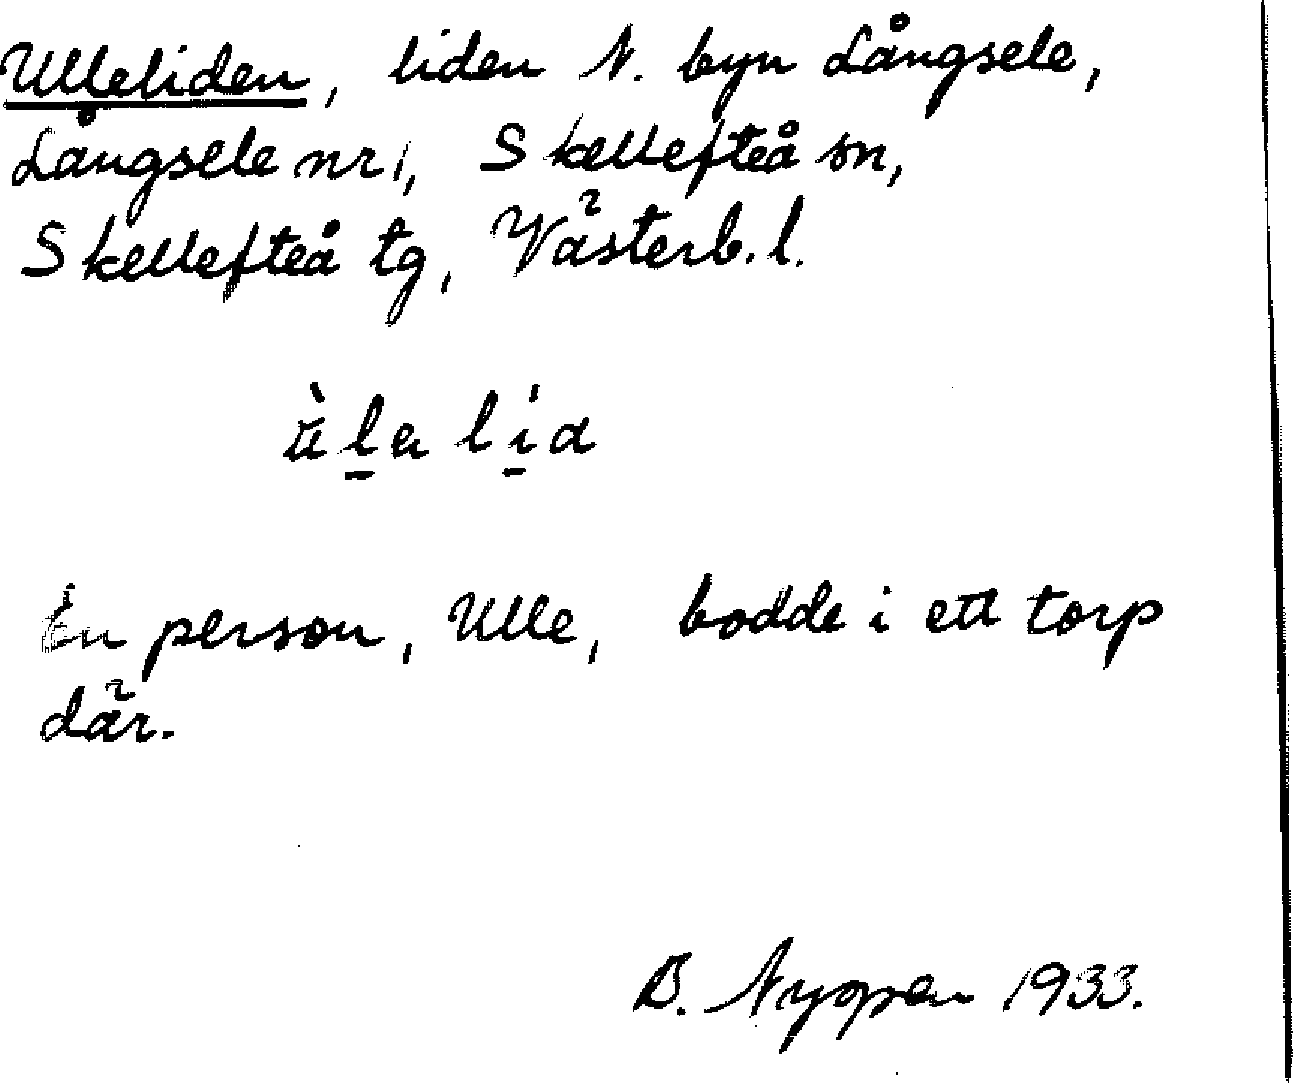 Ulleliden, liden N. byn Långsele,
Långsele nr 1, Skellefteå sn,
Skellefteå tg, Västerb. l.
En person, Ulle, bodde i ett torp
där.
B. 1933.